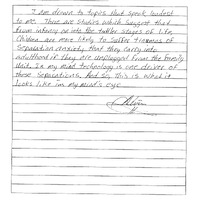 I am drawn to topics that speak loudest
to me. There are studies which suggest that
from infancy on into the toddler stages of life,
Children are more likely to suffer traumas of
separation anxiety that they carry into
adulthood if they are unplugged from the family
unit. In my mind technology is one driver of
these separations. And so, this is what it
looks like in my mind's eye.